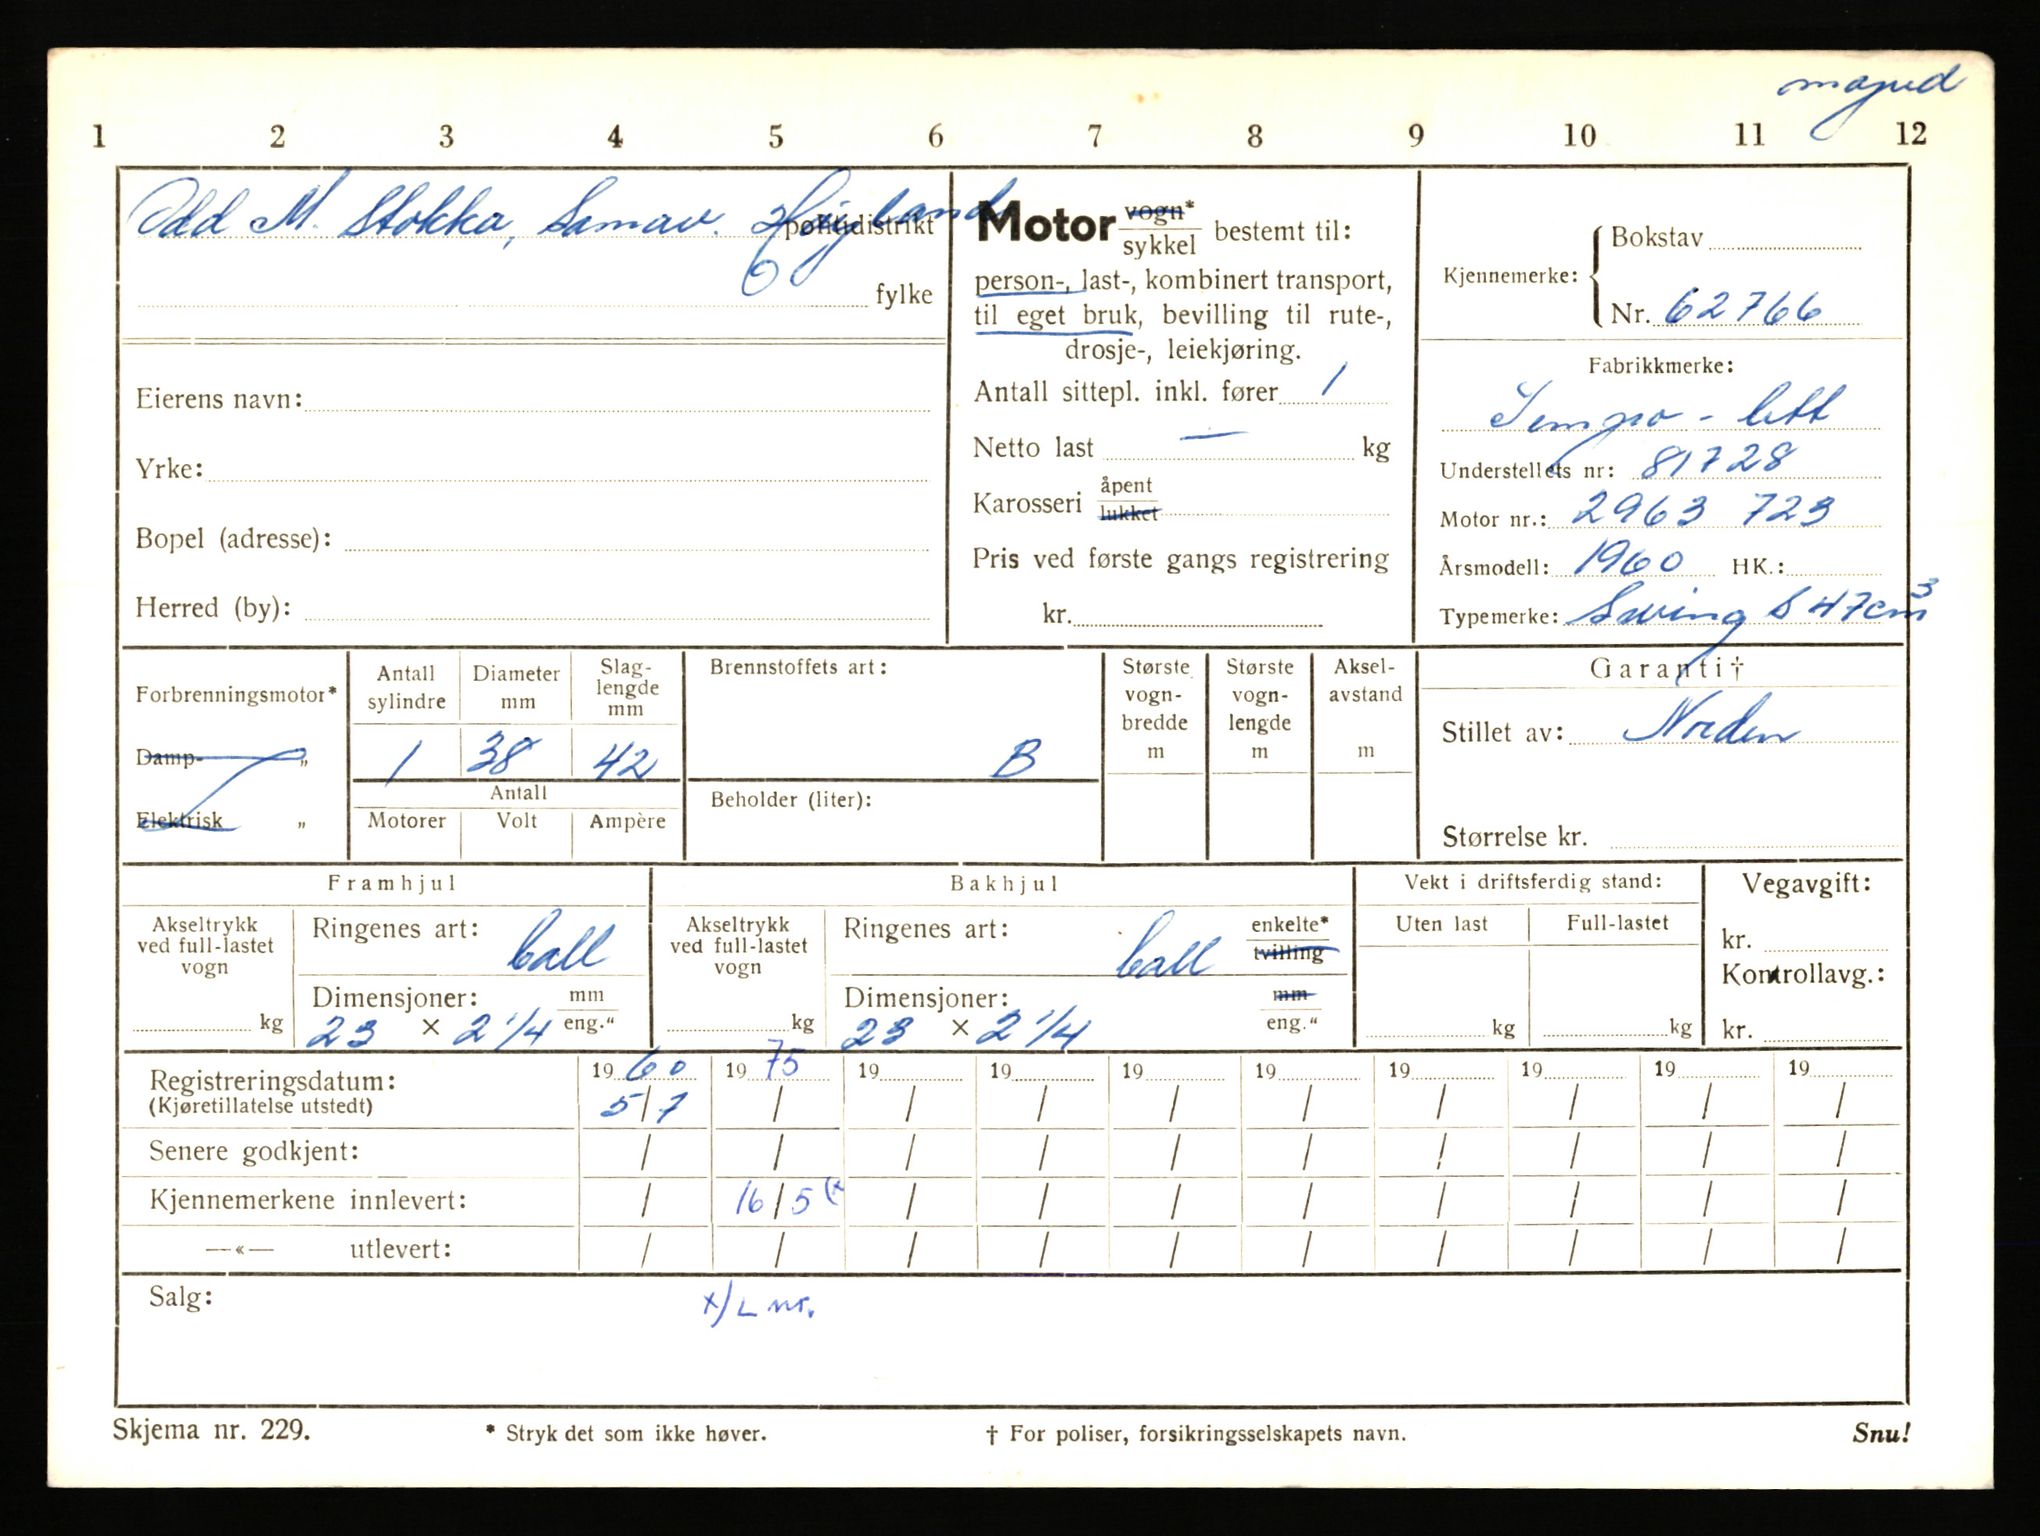 moped
1 2 3 4 5 6 7 8 9 10 11 12
Odd M. Stokka, Somav. Høyland
politidistrikt
fylke
Eierens navn:
Yrke:
Bopel (adresse):
Herred (by):
Motor vogn* / sykkel bestemt til:
person-, last-, kombinert transport,
til eget bruk, bevilling til rute-,
drosje-, leiekjøring.
Antall sittepl. inkl. fører 1
Netto last — kg
Karosseri åpent / lukket
Pris ved første gangs registrering
kr.
Kjennemerke: Bokstav
Nr. 62766
Fabrikkmerke:
Tempo - lett
Understellets nr: 81728
Motor nr.: 2963 723
Årsmodell: 1960 HK.:
Typemerke: Swing S 47cm³
Forbrenningsmotor*
Damp- „
Elektrisk „
Antall sylindre
1
Diameter mm
38
Slag-lengde mm
42
Antall
Motorer Volt Ampère
Brennstoffets art:
B
Beholder (liter):
Største vogn-bredde m
Største vogn-lengde m
Aksel-avstand m
Garanti†
Stillet av: Norden
Størrelse kr.
Framhjul
Akseltrykk ved full-lastet vogn
kg
Ringenes art: ball
Dimensjoner: mm / eng."
23 × 2 1/4
Bakhjul
Akseltrykk ved full-lastet vogn
kg
Ringenes art: ball enkelte* / tvilling
Dimensjoner: mm / eng."
23 × 2 1/4
Vekt i driftsferdig stand:
Uten last Full-lastet
kg kg
Vegavgift:
kr.
Kontrollavg.:
kr.
19 60 19 75 19 19 19 19 19 19 19 19
Registreringsdatum:
(Kjøretillatelse utstedt) 5/7 / / / / / / / / /
Senere godkjent: / / / / / / / / / /
Kjennemerkene innlevert: / 16/5 (x / / / / / / / /
—«— utlevert: / / / / / / / / / /
Salg: x) L nr.
Skjema nr. 229. * Stryk det som ikke høver. † For poliser, forsikringsselskapets navn. Snu!